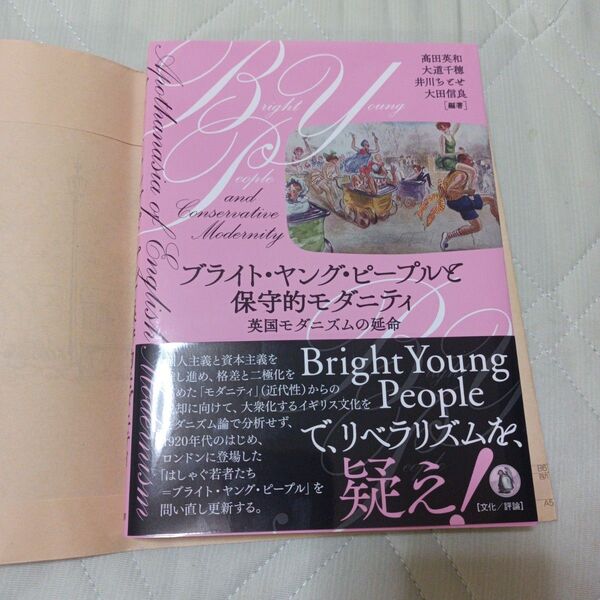 髙田英和
大道千穂
井川ちとせ
大田信良
[編著]
Bright Young
People
and
Conservative
Modernity
Apothanasia of English Modernism
ブライト・ヤング・ピープルと
保守的モダニティ
英国モダニズムの延命
人主義と資本主義を
し進め、格差と二極化を
めた「モダニティ」(近代性)からの
却に向けて、大衆化するイギリス文化を
モダニズム論で分析せず、
1920年代のはじめ、
ロンドンに登場した
「はしゃぐ若者たち
=ブライト・ヤング・ピープル」を
問い直し更新する。
Bright Young
People
で、リベラリズムを、
疑え!
[文化/評論]
A5